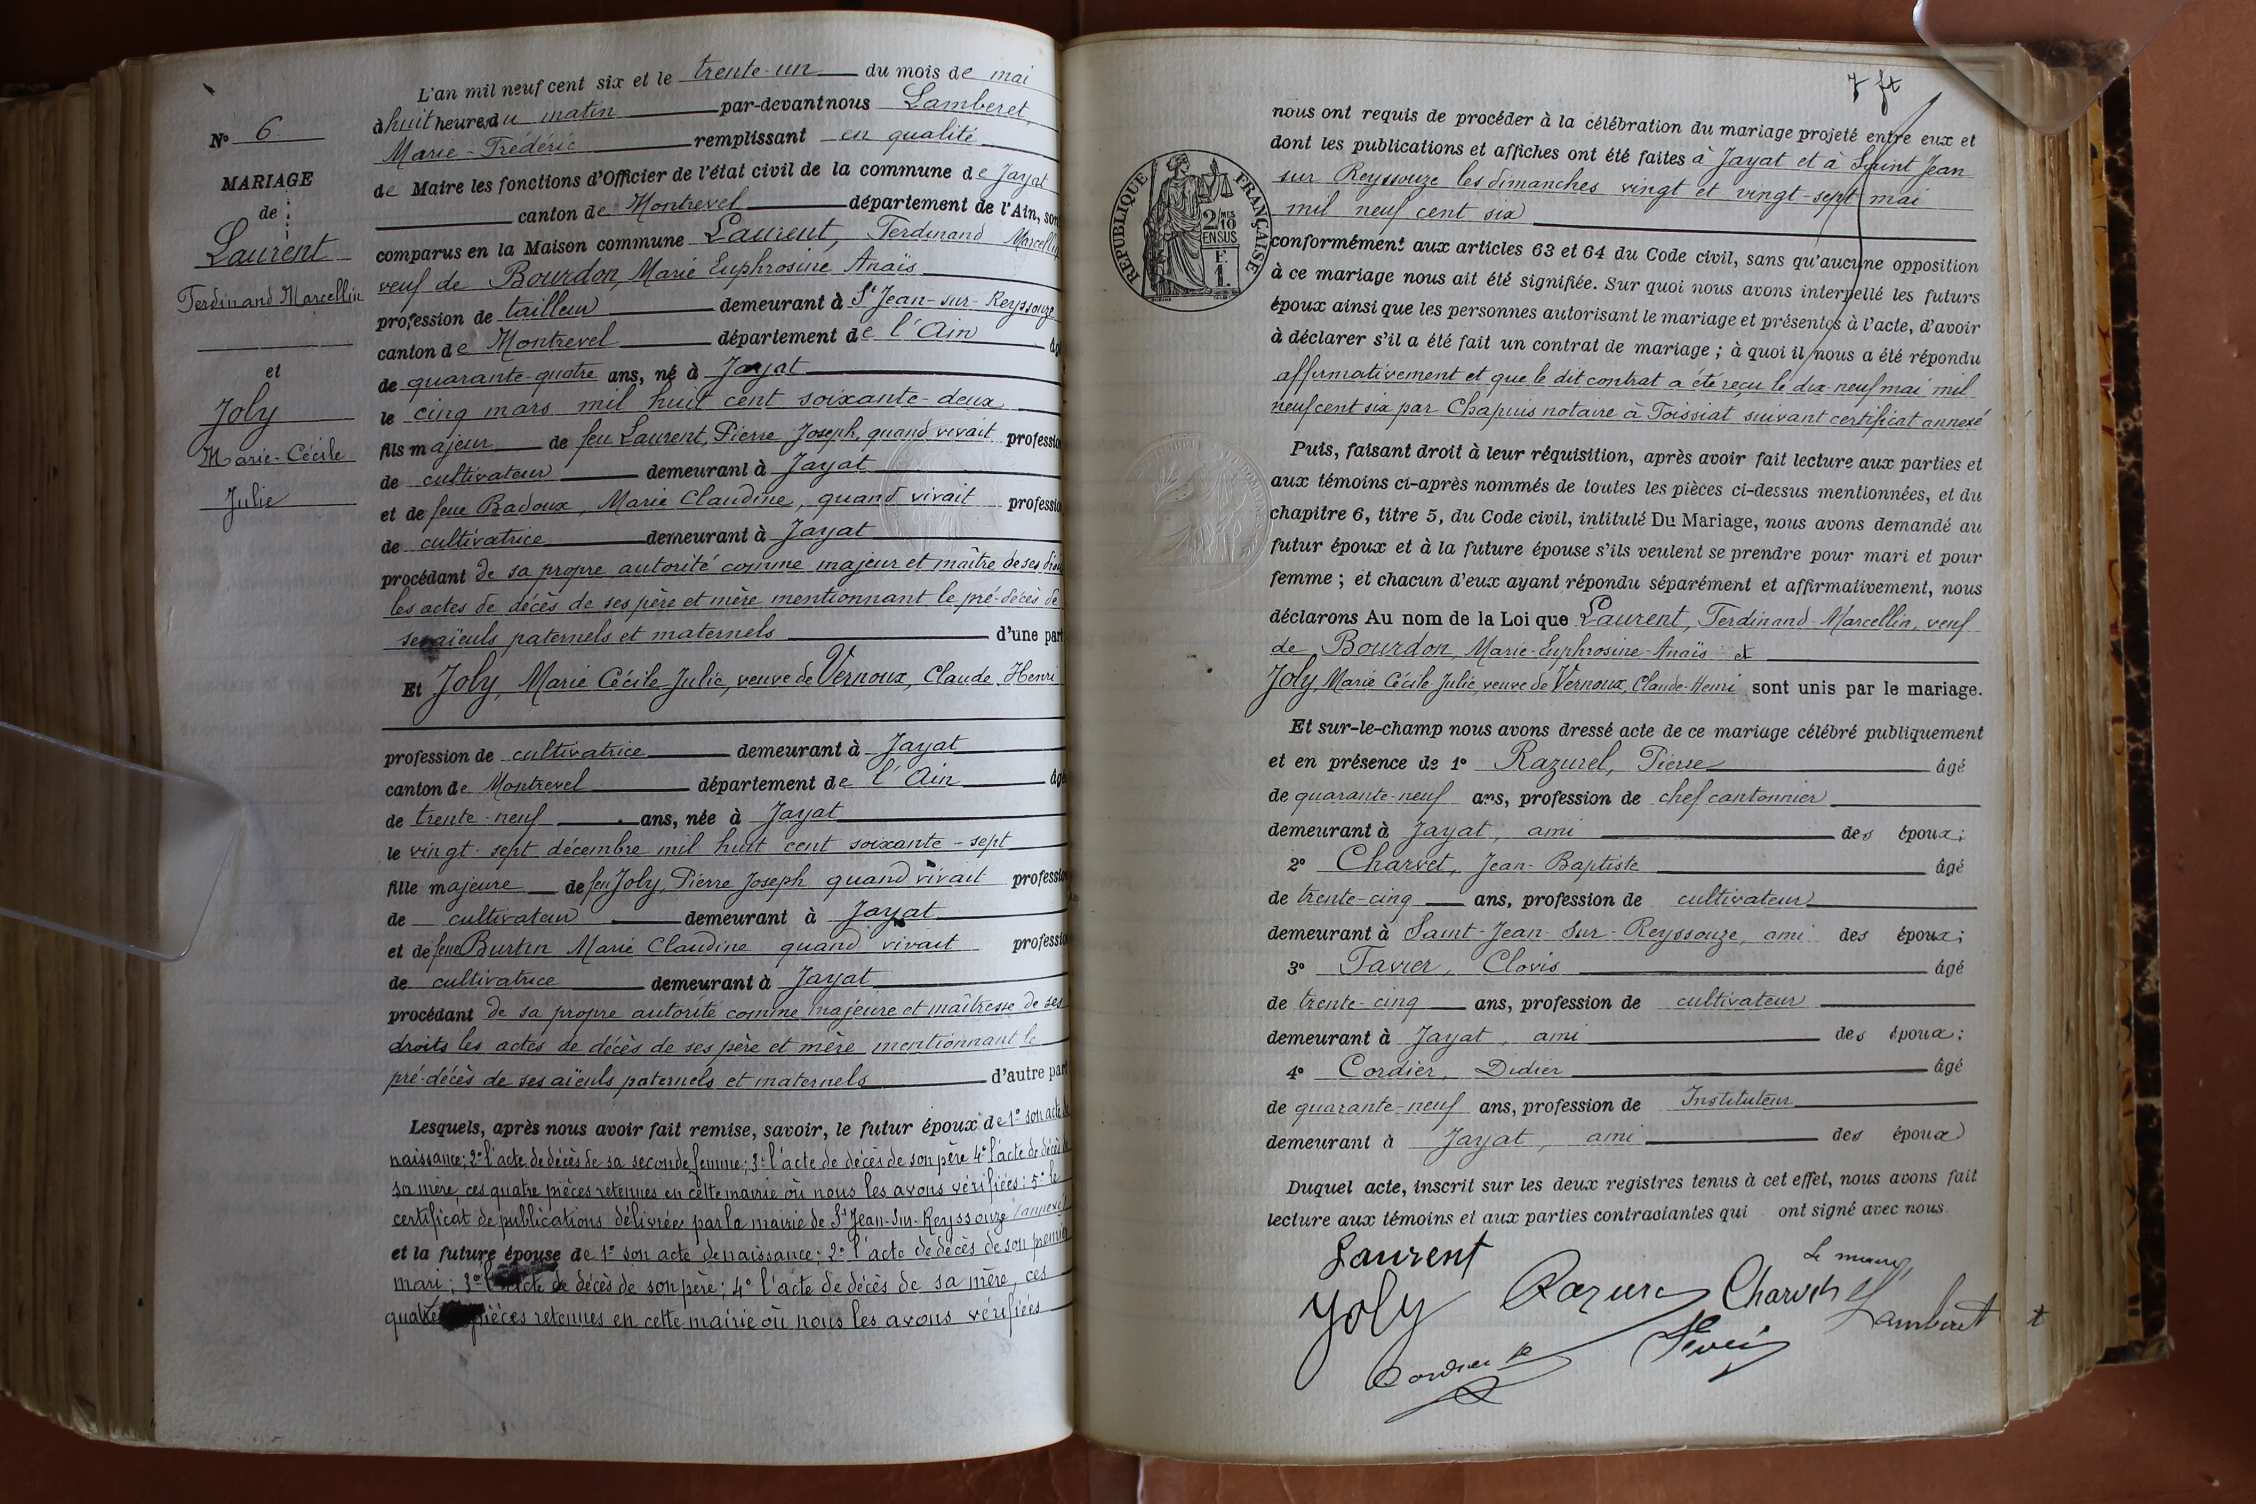 L'an mil neuf cent six et le trente-un du mois de mai
à huit heures du matin par-devant nous Lamberet,
Marie-Frédéric remplissant en qualité
de Maire les fonctions d'Officier de l'état civil de la commune de Jayat
canton de Montrevel département de l'Ain, sont
comparus en la Maison commune Laurent, Ferdinand Marcellin
veuf de Bourdon, Marie Euphrosine Anaïs
profession de tailleur demeurant à St Jean-sur-Reyssouze
canton de Montrevel département de l'Ain âgé
de quarante-quatre ans, né à Jayat
le cinq mars mil huit cent soixante-deux
fils majeur de feu Laurent, Pierre Joseph, quand vivait profession
de cultivateur demeurant à Jayat
et de feue Badoux, Marie Claudine, quand vivait profession
de cultivatrice demeurant à Jayat
procédant de sa propre autorité comme majeur et maître de ses droits
les actes de décès de ses père et mère mentionnant le pré-décès de
ses aïeuls paternels et maternels d'une part
Et Joly, Marie Cécile Julie, veuve de Vernoux, Claude Henri
profession de cultivatrice demeurant à Jayat
canton de Montrevel département de l'Ain âgé
de trente-neuf ans, née à Jayat
le vingt-sept décembre mil huit cent soixante-sept
fille majeure de feu Joly, Pierre Joseph quand vivait profession
de cultivateur demeurant à Jayat
et de feue Burtin Marie Claudine quand vivait profession
de cultivatrice demeurant à Jayat
procédant de sa propre autorité comme majeure et maîtresse de ses
droits les actes de décès de ses père et mère mentionnant le
pré-décès de ses aïeuls paternels et maternels d'autre part
Lesquels, après nous avoir fait remise, savoir, le futur époux de 1° son acte de
naissance; 2° l'acte de décès de sa seconde femme; 3° l'acte de décès de son père 4° l'acte de décès de
sa mère, ces quatre pièces retenues en cette mairie où nous les avons vérifiées; 5° le
certificat de publications délivrée par la mairie de St Jean-sur-Reyssouze (annexé)
et la future épouse de 1° son acte de naissance; 2° l'acte de décès de son premier
mari; 3° l'acte de décès de son père; 4° l'acte de décès de sa mère, ces
quatre pièces retenues en cette mairie où nous les avons vérifiées
N° 6
MARIAGE
de
Laurent
Ferdinand Marcellin
et
Joly
Marie-Cécile
Julie
7 ft
REPUBLIQUE FRANÇAISE
2/10 MES
EN SUS
F.
1.
nous ont requis de procéder à la célébration du mariage projeté entre eux et
dont les publications et affiches ont été faites à Jayat et à Saint Jean
sur Reyssouze les dimanches vingt et vingt-sept mai
mil neuf cent six
conformément aux articles 63 et 64 du Code civil, sans qu'aucune opposition
à ce mariage nous ait été signifiée. Sur quoi nous avons interpellé les futurs
époux ainsi que les personnes autorisant le mariage et présentes à l'acte, d'avoir
à déclarer s'il a été fait un contrat de mariage; à quoi il nous a été répondu
affirmativement et que le dit contrat a été reçu le dix-neuf mai mil
neuf cent six par Chapuis notaire à Foissiat suivant certificat annexé
Puis, faisant droit à leur réquisition, après avoir fait lecture aux parties et
aux témoins ci-après nommés de toutes les pièces ci-dessus mentionnées, et du
chapitre 6, titre 5, du Code civil, intitulé Du Mariage, nous avons demandé au
futur époux et à la future épouse s'ils veulent se prendre pour mari et pour
femme; et chacun d'eux ayant répondu séparément et affirmativement, nous
déclarons Au nom de la Loi que Laurent, Ferdinand-Marcellin, veuf
de Bourdon, Marie-Euphrosine-Anaïs et
Joly, Marie Cécile Julie, veuve de Vernoux, Claude-Henri sont unis par le mariage.
Et sur-le-champ nous avons dressé acte de ce mariage célébré publiquement
et en présence de 1° Razurel, Pierre âgé
de quarante-neuf ans, profession de chef cantonnier
demeurant à Jayat, ami des époux;
2° Charvet, Jean-Baptiste âgé
de trente-cinq ans, profession de cultivateur
demeurant à Saint-Jean-Sur-Reyssouze, ami des époux;
3° Favier, Clovis âgé
de trente-cinq ans, profession de cultivateur
demeurant à Jayat, ami des époux;
4° Cordier, Didier âgé
de quarante-neuf ans, profession de Instituteur
demeurant à Jayat, ami des époux
Duquel acte, inscrit sur les deux registres tenus à cet effet, nous avons fait
lecture aux témoins et aux parties contractantes qui ont signé avec nous
Laurent
Le maire,
Joly Razurel Charvet
Lamberet
Cordier